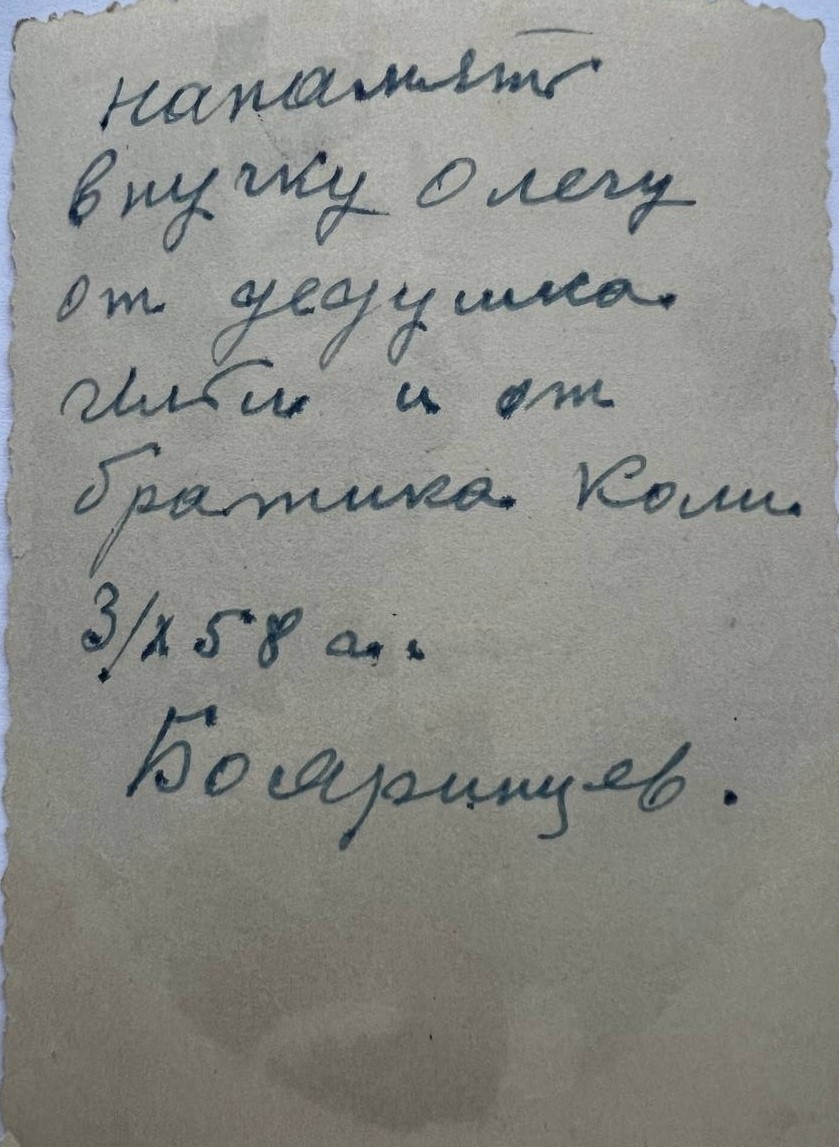 напамять
внучку Олечу
от дедушка
и от
братика Коли
3/X 58
Бояринцев.